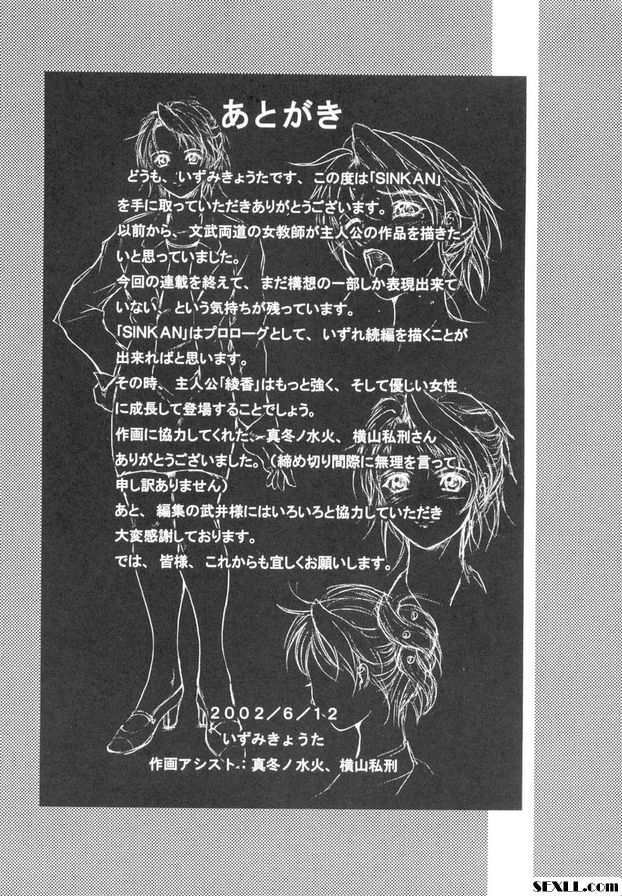 あとがき
どうも、いずみきょうたです、この度は「SINKAN」
を手に取っていただきありがとうございます。
以前から、文武両道の女教師が主人公の作品を描きた
いと思っていました。
今回の連載を終えて、まだ構想の一部しか表現出来て
いない、という気持ちが残っています。
「SINKAN」はプロローグとして、いずれ続編を描くことが
出来ればと思います。
その時、主人公「綾香」はもっと強く、そして優しい女性
に成長して登場することでしょう。
作画に協力してくれた、真冬ノ水火、横山私刑さん
ありがとうございました。（締め切り間際に無理を言って
申し訳ありません）
あと、編集の武井様にはいろいろと協力していただき
大変感謝しております。
では、皆様、これからも宜しくお願いします。
2002/6/12
いずみきょうた
作画アシスト：真冬ノ水火、横山私刑
SEXLL.com